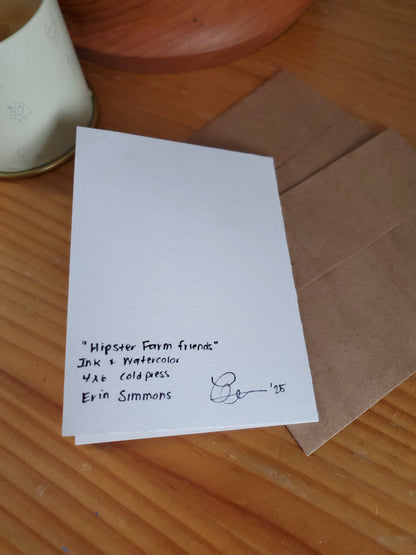 "Hipster Farm friends"
Ink & Watercolor
4x6 cold press
Erin Simmons
'25